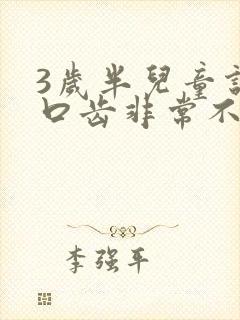 3歲半兒童說
口齿非常不
李强平